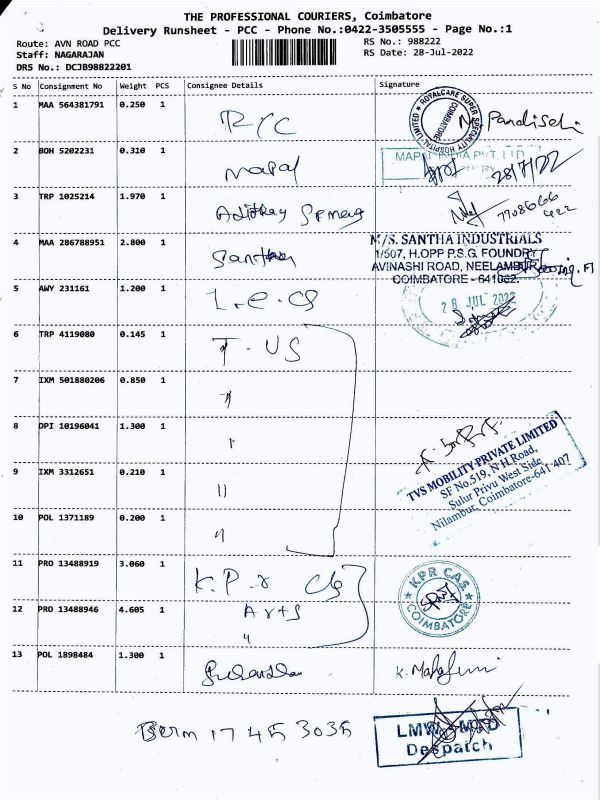 THE PROFESSIONAL COURIERS, Coimbatore
Delivery Runsheet - PCC - Phone No.:0422-3505555 - Page No.:1
Route: AVN ROAD PCC
Staff: NAGARAJAN
DRS No.: DCJB98822201
RS No.: 988222
RS Date: 28-Jul-2022
S No Consignment No Weight PCS Consignee Details Signature
1 MAA 564381791 0.250 1
ROYALCARE SUPER SPECIALITY HOSPITAL LIMITED
COIMBATORE
2 BOH 5202231 0.310 1 mapal
MAPAL INDIA PVT. LTD
28/7/22
3 TRP 1025214 1.970 1
4 MAA 286788951 2.800 1
M/S. SANTHA INDUSTRIALS
1/507, H.OPP P.S.G. FOUNDRY
AVINASHI ROAD, NEELAMBUR
COIMBATORE - 641062.
5 AWY 231161 1.200 1
28 JUL 2022
6 TRP 4119080 0.145 1 T.US
7 IXM 501880206 0.850 1 "
8 DPI 10196041 1.300 1
9 IXM 3312651 0.210 1 "
10 POL 1371189 0.200 1 "
TVS MOBILITY PRIVATE LIMITED
SF No.519, N H Road,
Sulur Privu West Side
Nilambur, Coimbatore-641 407
11 PRO 13488919 3.060 1 K.P.r
12 PRO 13488946 4.605 1 Arts
"
KPR CAS
COIMBATORE
13 POL 1898484 1.300 1
17 45 3035
LMW - MTD
Despatch